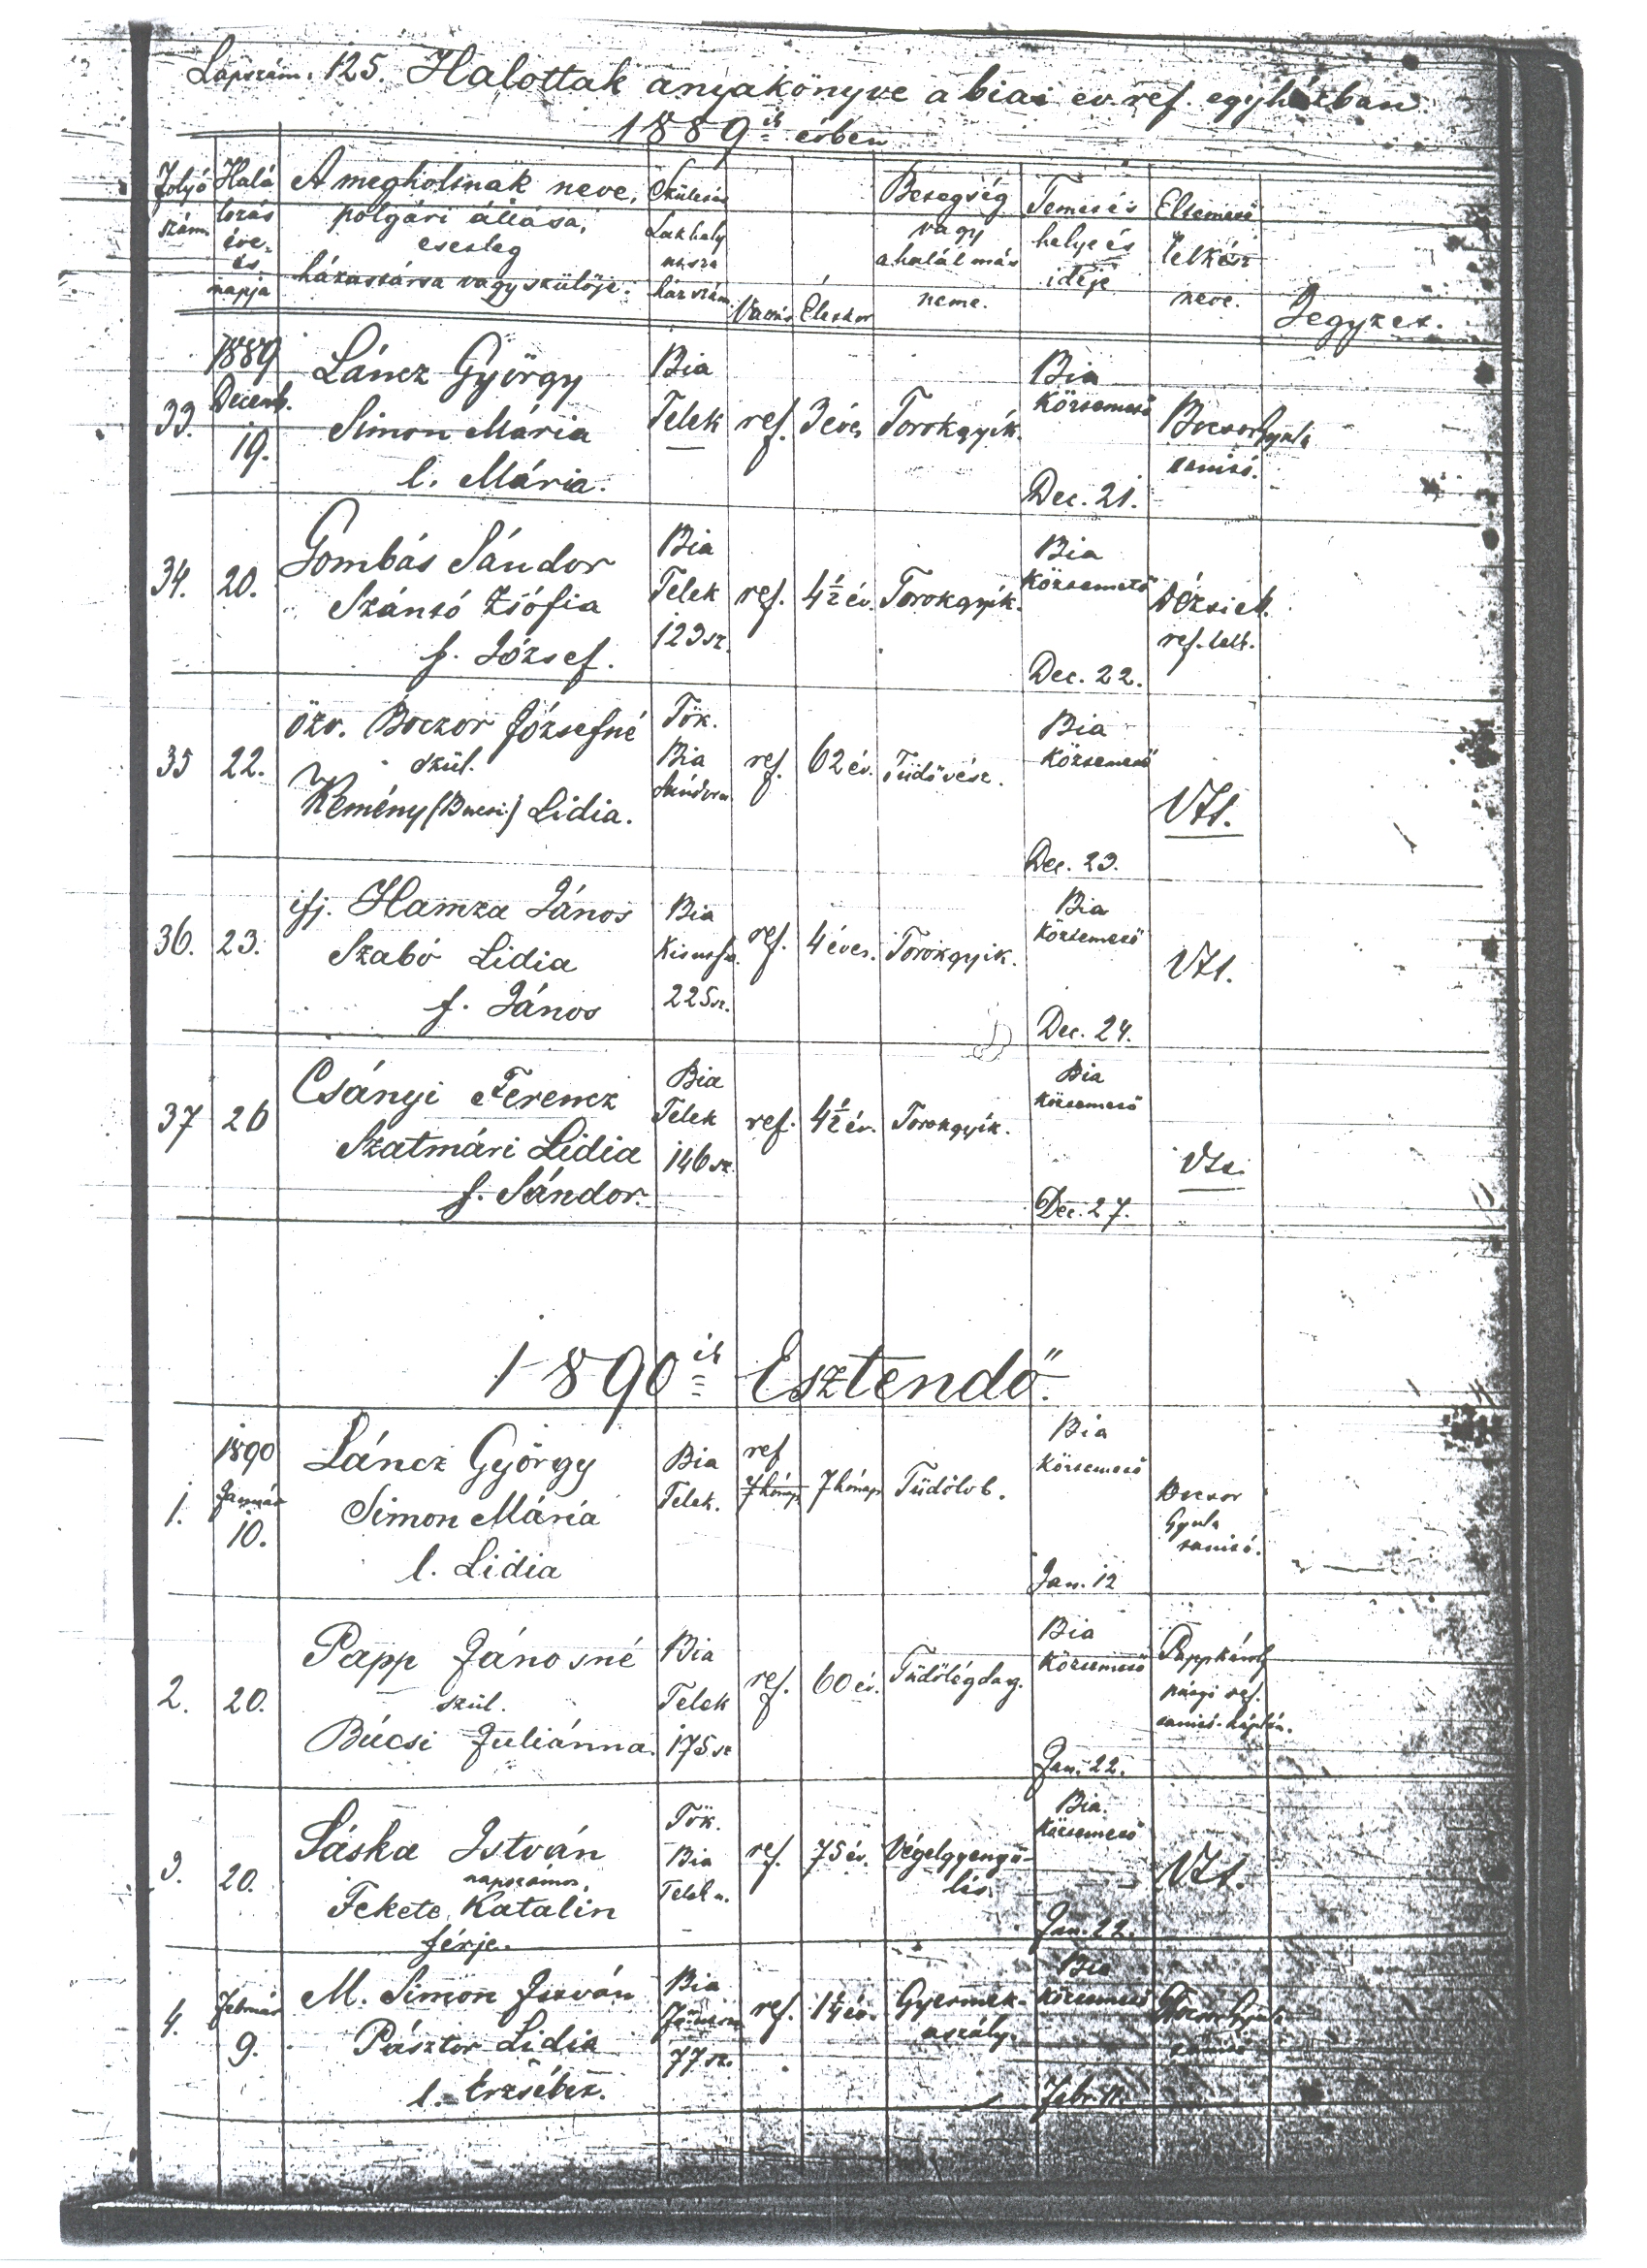 Lapszám. 125. Halottak anyakönyve a biai ev. ref. egyházban
1889ik évben
Folyó szám.
Halálozás éve és napja
A megholtnak neve,
polgári állása,
esetleg
házastársa vagy szülője.
Születési
Lakhely
utsza
házszám.
Vallás
Életkor
Betegség
vagy
a halál más
neme.
Temetés
helye és
ideje
Eltemető
lelkész
neve.
Jegyzet.
33.
1889
Decemb.
19.
Láncz György
Simon Mária
l. Mária.
Bia
Telek
ref.
3 éves
Torokgyík.
Bia
köztemető
Dec. 21.
Boczor Gyula
tanitó.
34.
20.
Gombás Sándor
Szántó Zsófia
f. József.
Bia
Telek
123 sz.
ref.
4½ év.
Torokgyík.
Bia
köztemető
Dec. 22.
ref. lelk.
35
22.
özv. Boczor Józsefné
szül.
Kemény (Bucsi) Lidia.
Tök.
Bia
Sándor u.
ref.
62 év.
Tüdővész.
Bia
köztemető
Dec. 23.
U.az.
36.
23.
ifj. Hamza János
Szabó Lidia
f. János
Bia
225 sz.
ref.
4 éves.
Torokgyik.
Bia
köztemető
Dec. 24.
U.az.
37
26
Csányi Ferencz
Szatmári Lidia
f. Sándor.
Bia
Telek
146 sz.
ref.
4½ év.
Torokgyík.
Bia
köztemető
Dec. 27.
U.az.
1890ik Esztendő.
1.
1890
Január
10.
Láncz György
Simon Mária
l. Lidia
Bia
Telek.
ref
7 hónap
7 hónap
Tüdőlob.
Bia
köztemető
Jan. 12
Boczor
Gyula
tanitó.
2.
20.
Papp Jánosné
szül.
Búcsi Juliánna.
Bia
Telek
175 sz
ref.
60 év.
Tüdőlégdag.
Bia
köztemető
Jan. 22.
Papp Károly
ref.
3.
20.
Sáska István
napszámos,
Fekete Katalin
férje.
Tök.
Bia
Telek u.
ref.
75 év.
Végelgyengü-
lés
Bia.
köztemető
Jan. 22.
U.az.
4.
Február
9.
M. Simon István
Pásztor Lidia
l. Erzsébet.
Bia
77 sz.
ref.
1¼ év.
Gyermek-
aszály.
Bia
köztemető
Febr. 11.
Boczor Gyula
tanitó